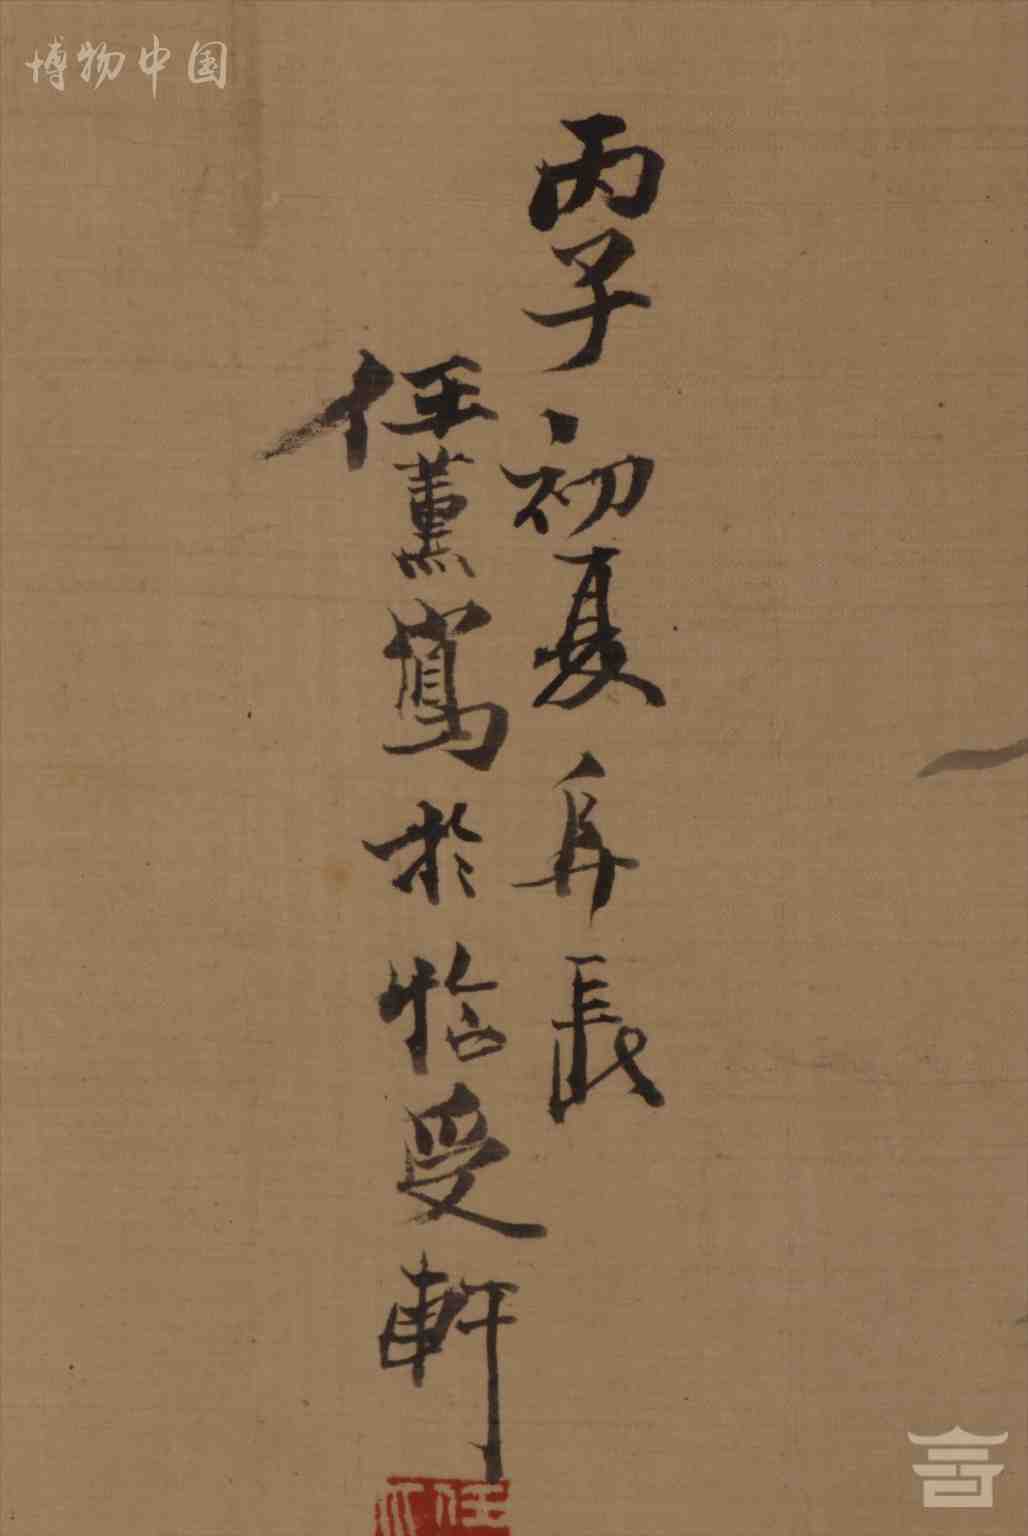 博物中国
丙子初夏阜長
任薰寫於怡受軒